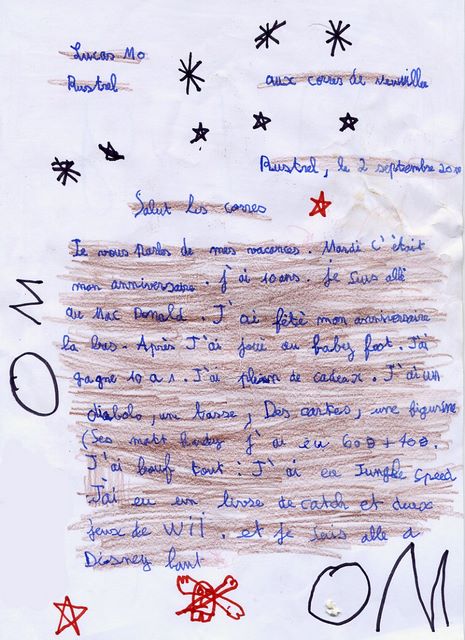 Lucas Mo
Rustrel
aux corres de
Rustrel, le 2 septembre 2010
Salut les corres
Je vous Parles de mes vacances. Mardi C'était
mon anniversaire. J'ai 10 ans. je suis allé
au Mac Donald. J'ai fêtè mon anniversaire
la bas. Après J'ai joué au baby foot. J'ai
gagne 10 a 1. J'ai plein de cadeax. J'ai un
diabolo, une tasse, Des cartes, une figurine
(Ses matt Hardy J'ai eu 60 + 40
J'ai bouf tout : J'ai eu Jungle speed
J'ai eu un livre de catch et deux
jeux de Wii. et je suis alle a
Disney
OM
OM